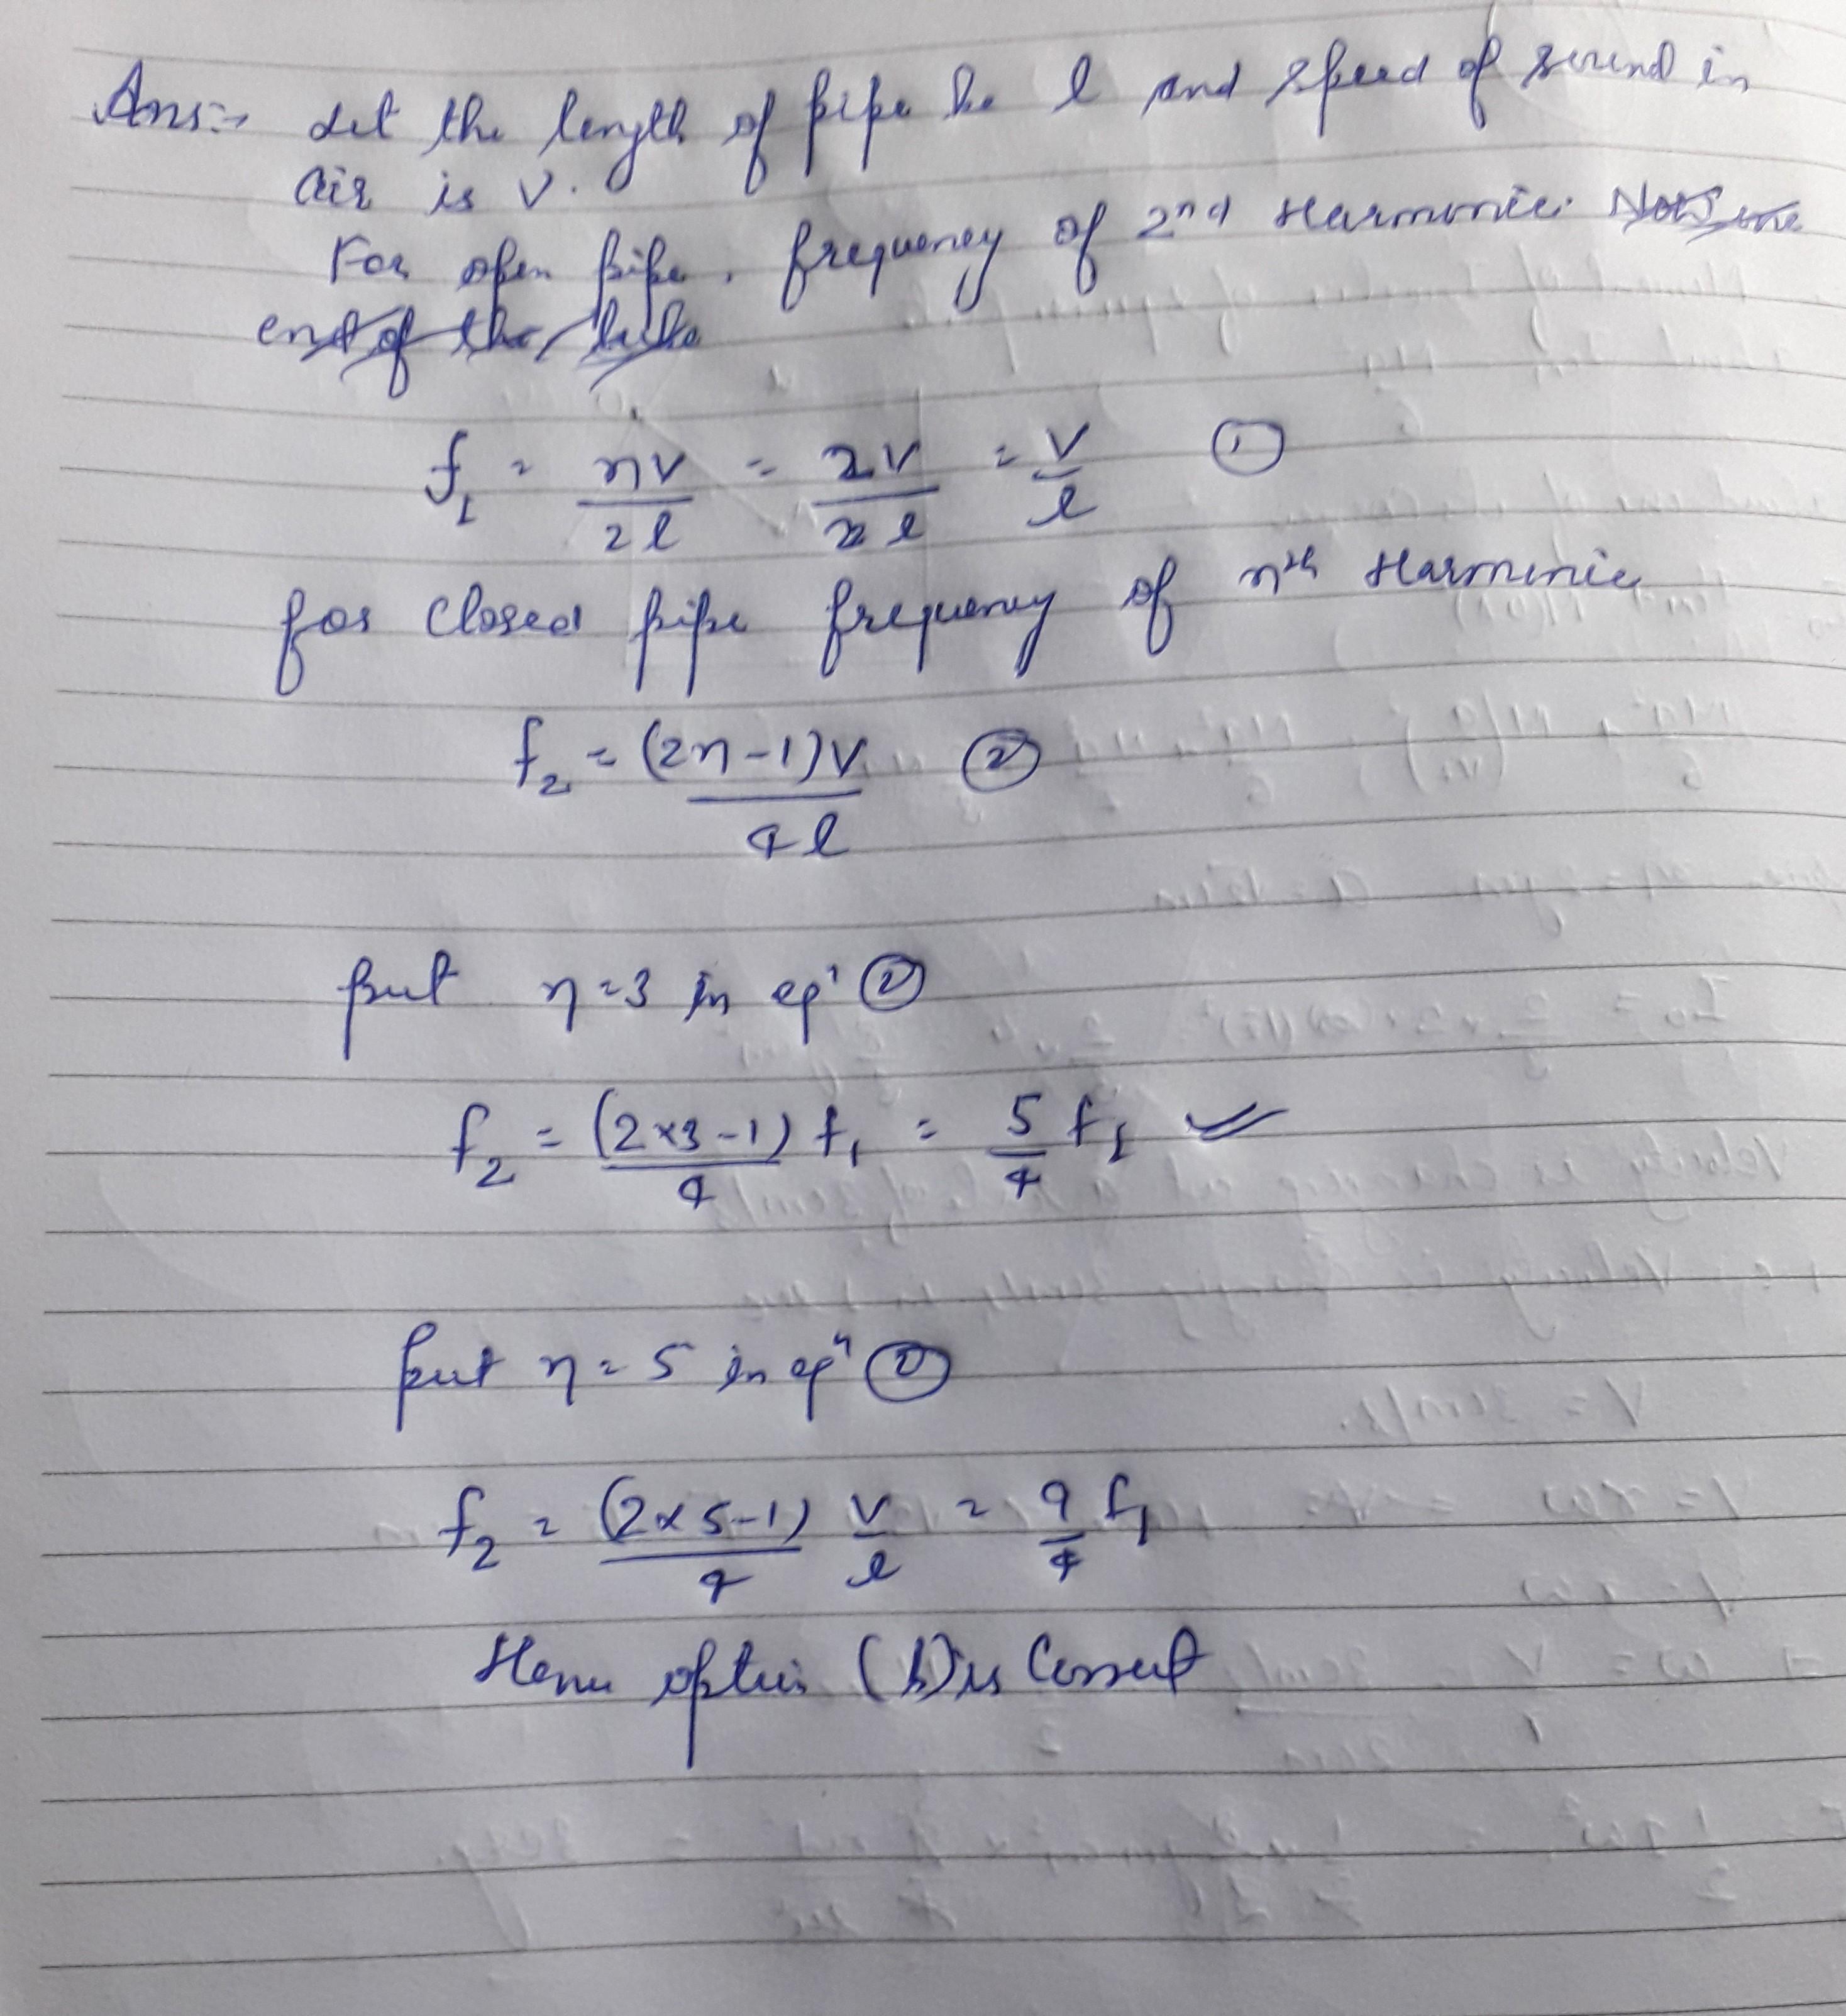 Ans:- Let the length of pipe be l and speed of sound in
air is v.
For open pipe, frequency of 2nd Harmonic. Now one
end of the tube
f₁ = nv/2l = 2v/2l = v/l ①
for closed pipe frequency of nth Harmonic
f₂ = (2n-1)v/4l ②
put n=3 in eqn ②
f₂ = (2×3-1)/4 f₁ = 5/4 f₁
put n=5 in eqn ②
f₂ = (2×5-1)/4 v/l = 9/4 f₁
Hence option (b) is Correct